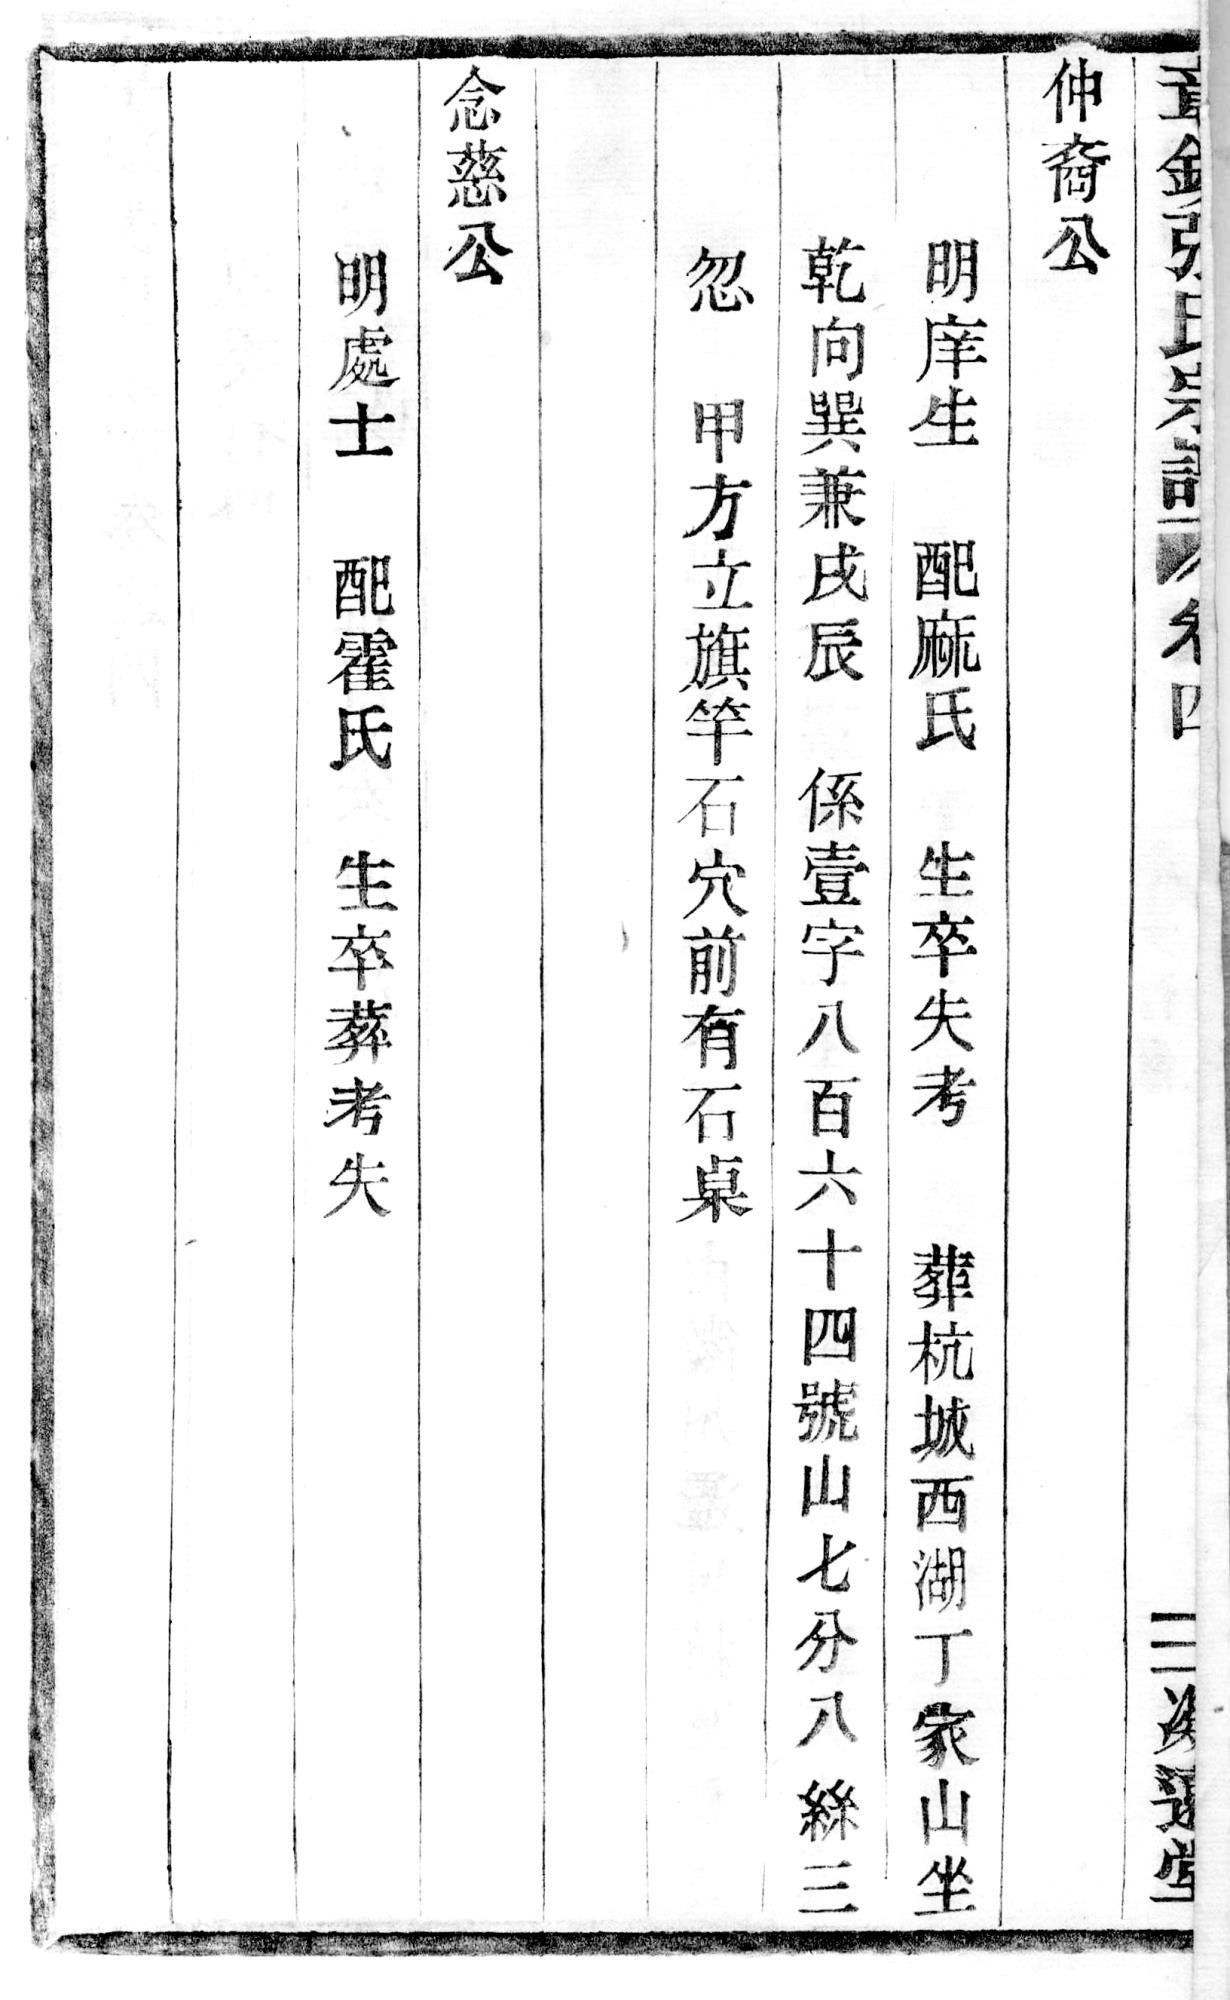 張氏宗譜 卷四 三
仲裔公
明庠生 配㾴氏 生卒失考 葬杭城西湖丁家山坐
乾向巽兼戌辰 係壹字八百六十四號山七分八絲三
忽 甲方立旗竿石穴前有石桌
念慈公
明處士 配霍氏 生卒葬考失